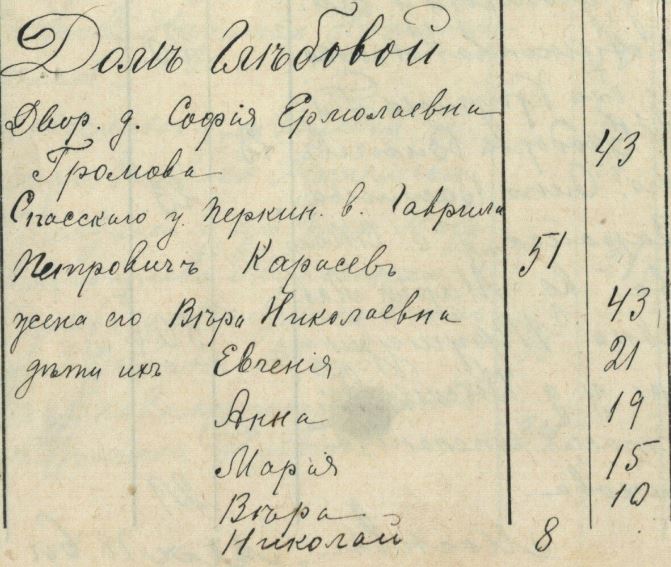 Домъ Глѣбовой
Двор. д. Софія Ермолаевна
Громова 43
Спасскаго у. Перкин. в. Гаврила
Петровичъ Карасевъ 51
жена его Вѣра Николаевна 43
дѣти ихъ Евгенія 21
Анна 19
Марія 15
Вѣра 10
Николай 8